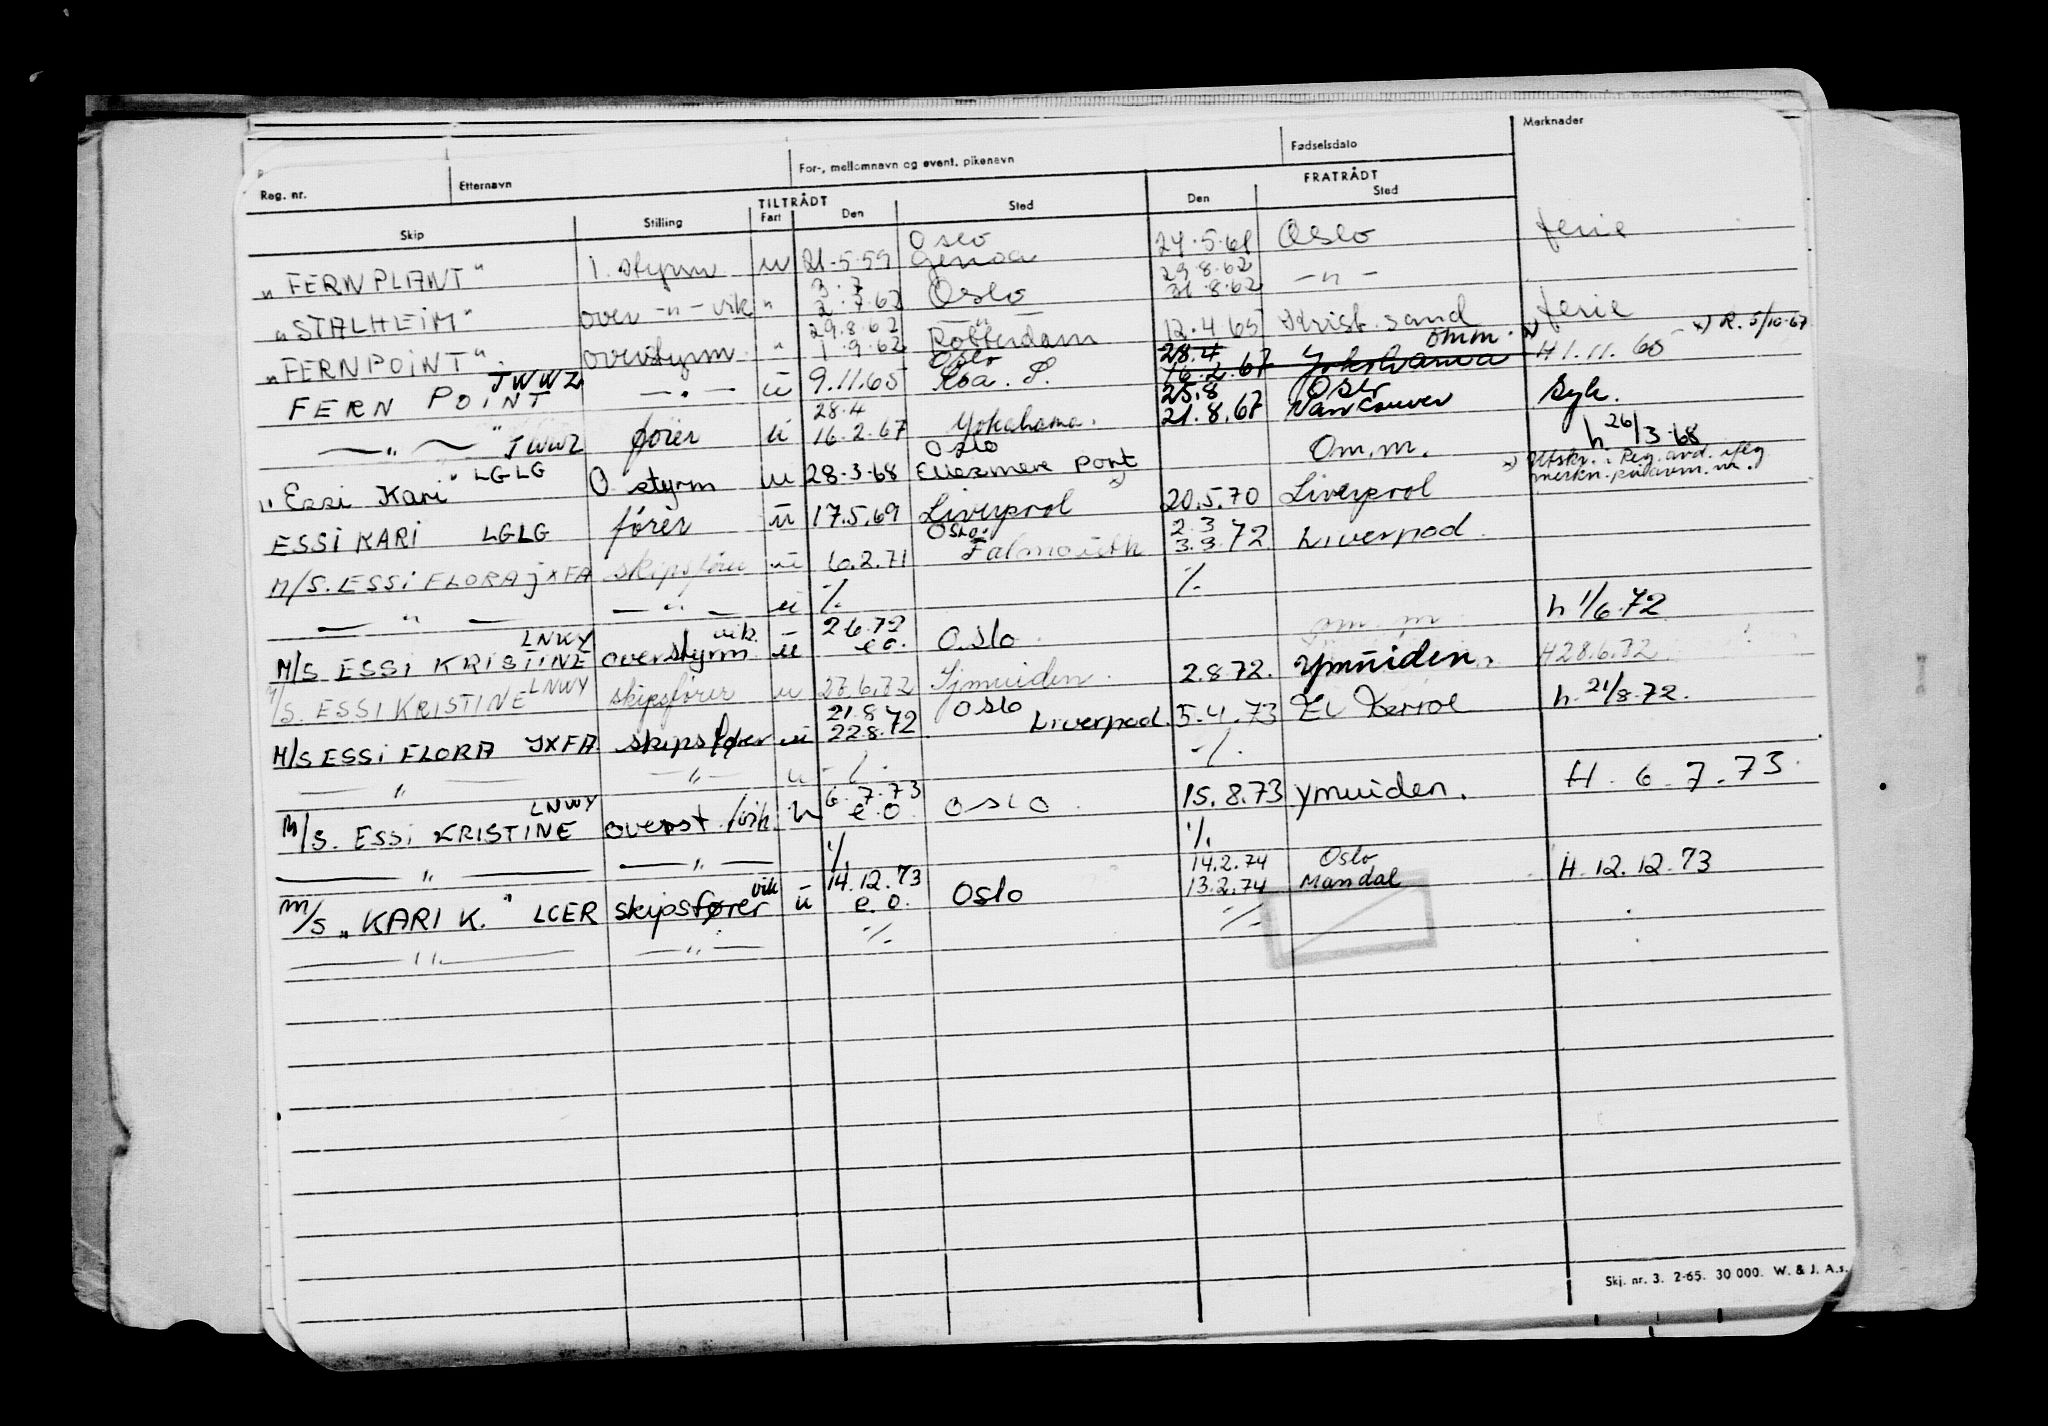 Reg. nr. Etternavn For-, mellomnavn og event. pikenavn Fødselsdato Merknader
TILTRÅDT FRATRÅDT
Skip Stilling Fart Den Sted Den Sted
Oslo
"FERNPLANT" 1. styrm u 21.5.59 Genoa 24.5.61 Oslo ferie
3.7 29.8.62
"STALHEIM" over -"- vik " 2.7.62 Oslo 31.8.62 -"-
29.8.62 -"-
"FERNPOINT" overstyrm " 1.9.62 Rotterdam 12.4.65 Krist.sand ferie
JWWZ Oslo 28.4 omm. x) x) R. 5/10-67
FERN POINT -"- ü 9.11.65 16.2.67 Yokohama H 1.11.65
28.4 25.8 Oslo
-"- JWWZ fører ü 16.2.67 Yokohama. 21.8.67 Vancouver Syk.
Oslo h 26/3-68
"Essi Kari" LGLG O styrm ü 28-3-68 Ellesmere port Om.m.
x)
ESSI KARI LGLG fører ü 17.5.69 Liverpool 20.5.70 Liverpool
Oslo. 2.3
M/S. ESSI FLORA JXFA skipsfører ü 6.2.71 Falmouth 3.3.72 Liverpool.
-"- -"- ü ./. ./.
LNWY vik. 2.6.72 om. m h 1/6.72
M/S ESSI KRISTIINE overstyrm ü e o. Oslo.
M/S. ESSI KRISTINE LNWY skipsfører u 27.6.72 Ijmuiden. 2.8.72. Ymuiden. H28.6.72
21.8 Oslo
M/S ESSI FLORA JXFA skipsfører ü 22.8.72 Liverpool. 5.4.73 El Ferrol h. 21/8-72.
-"- -"- u -/. -/.
LNWY 6.7.73
M/S. ESSI KRISTINE overst. e.o. OSLO. 15.8.73 Ymuiden. H. 6.7.73.
-"- -"- ./. ./.
vik 14.12.73 14.2.74 Oslo
M/S "KARI K." LCER skipsfører ü e.o. Oslo 13.2.74 Mandal H. 12.12.73
-"- -"- ./. ./.
Skj. nr. 3. 2-65. 30 000. W. & J. A.s.